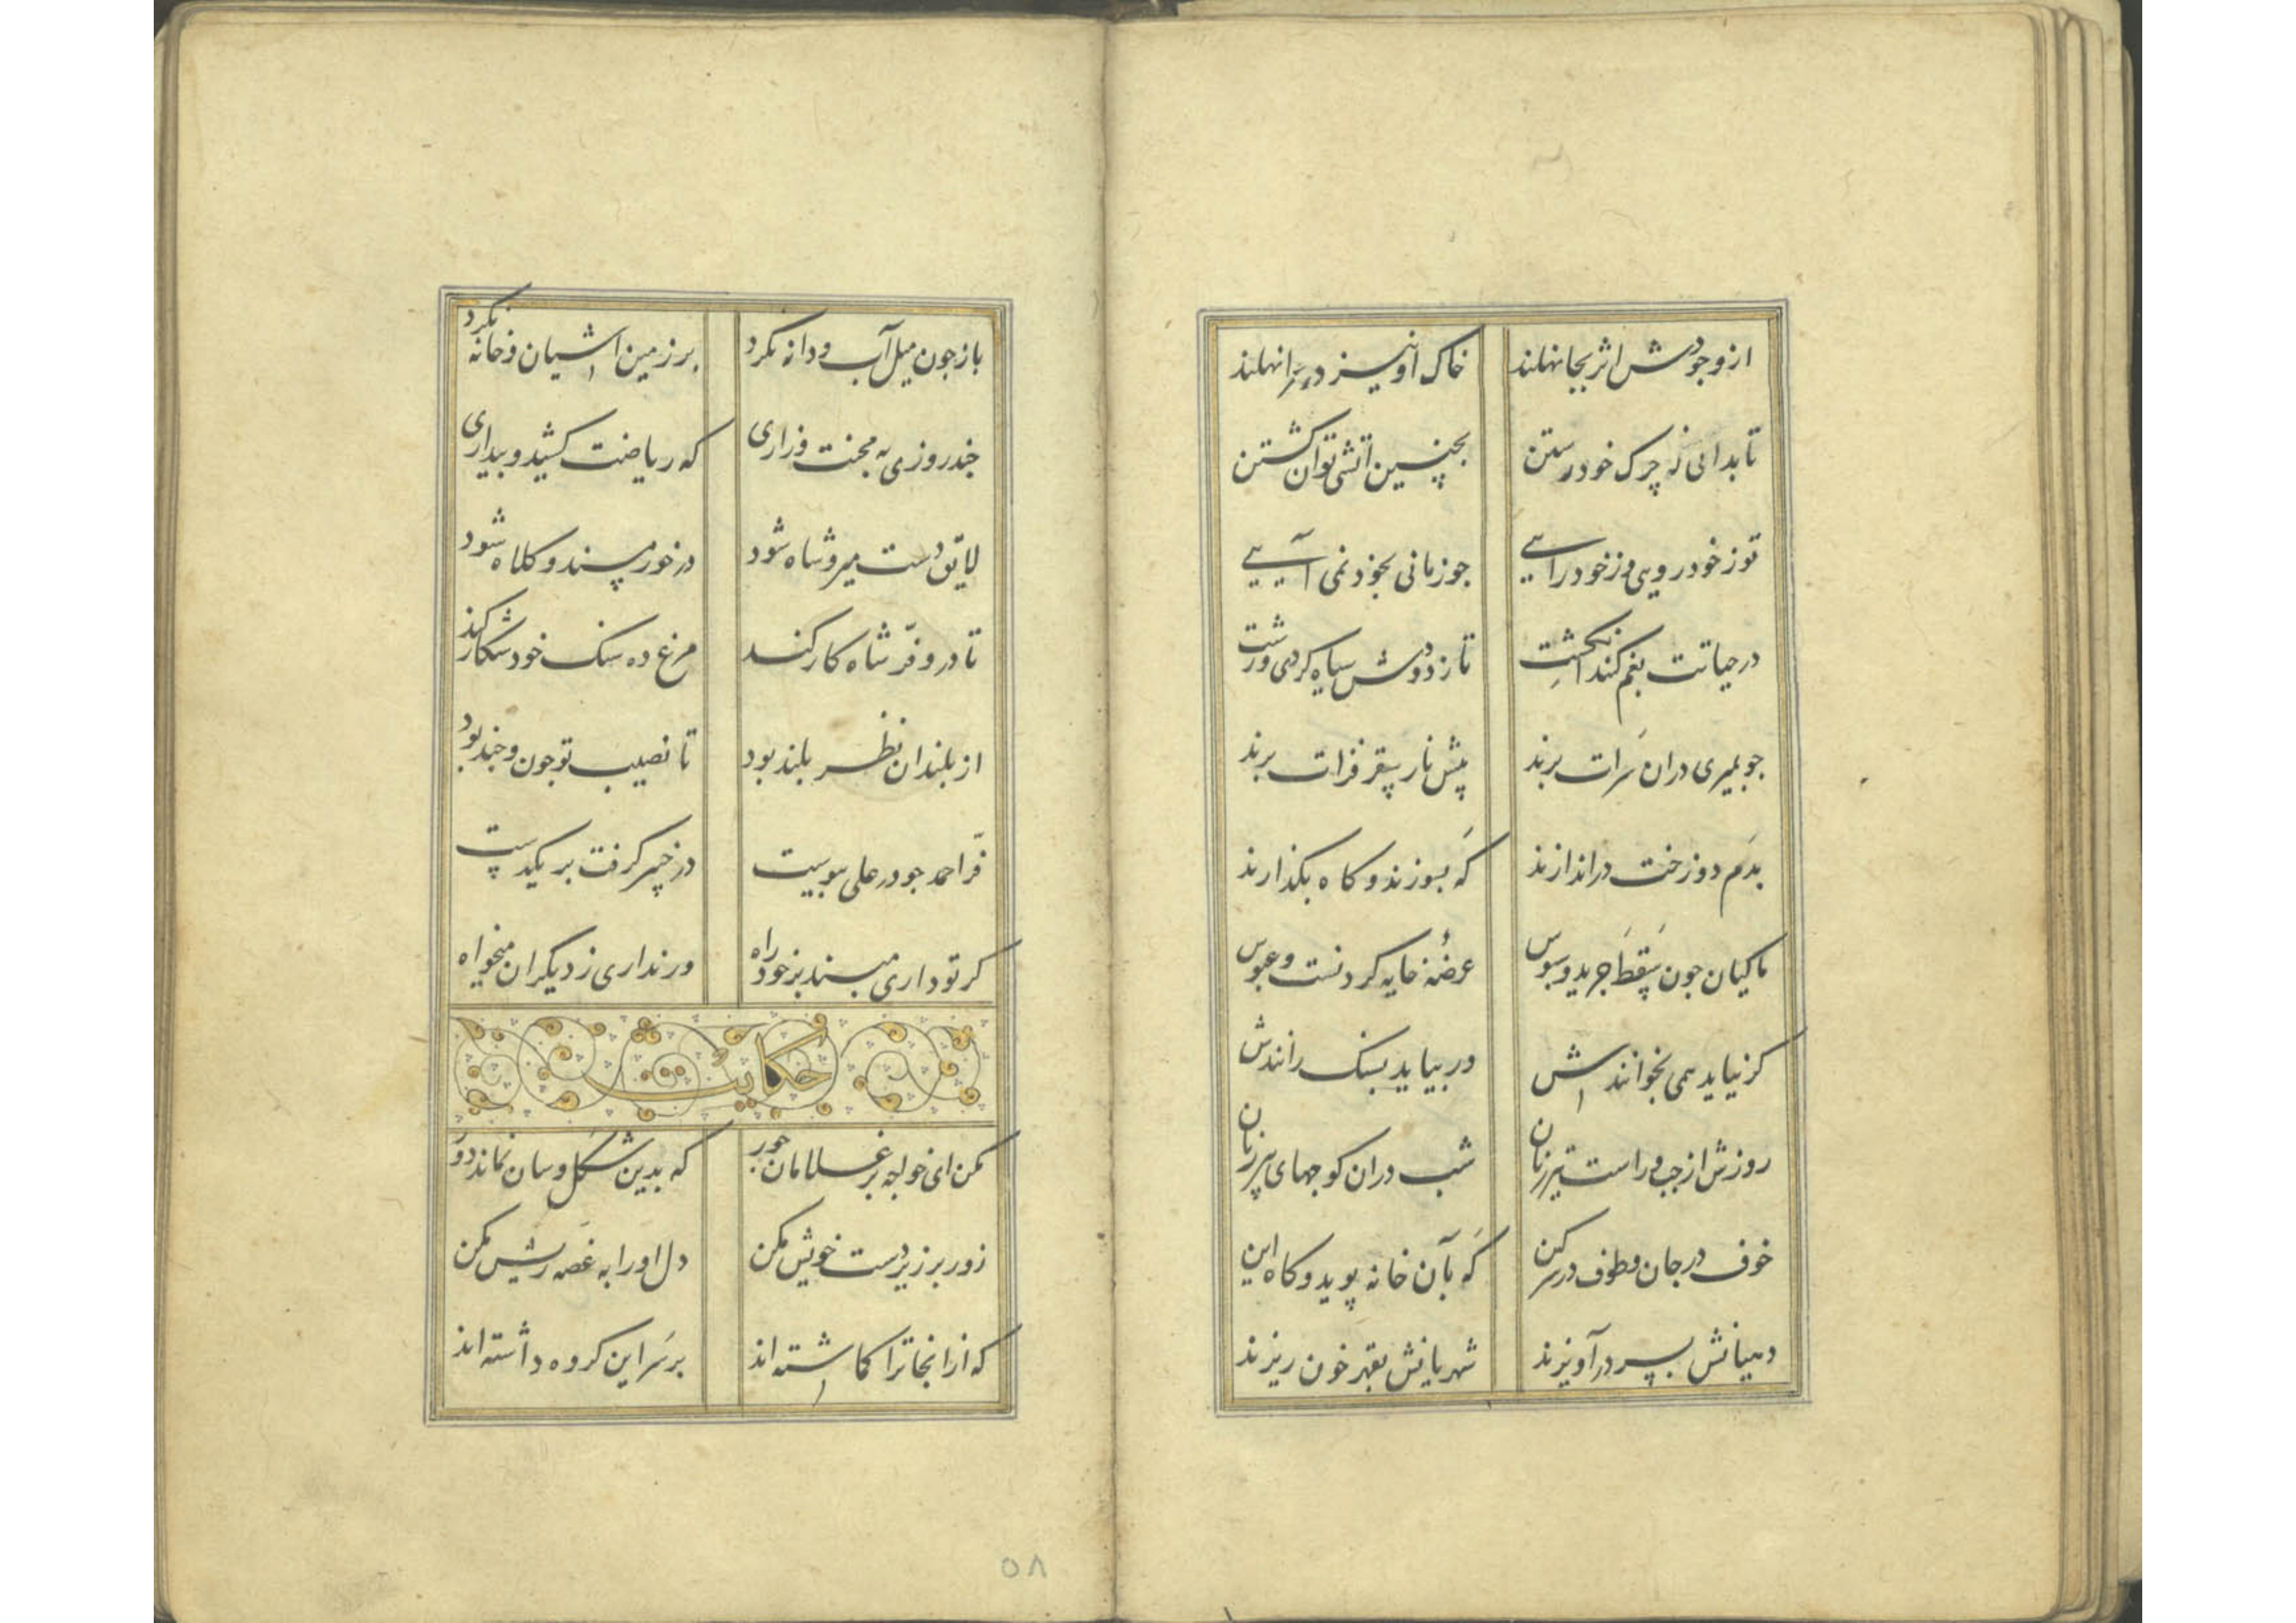 از وجودش اثر بجا نهلند خاک او نیز در سرا نهلند
تا بدانی که چرک خود رستن بچنین آتشی توان کشتن
تو ز خود روبی وز خود رایی جو زمانی بخود نمی آیی
در حیاتت بغم کند انکشت تا ز دودش سیاه کردی و زشت
جو بمیری دران سرات برند پیش نار سقر فرات برند
بدم دوزخت در اندازند که بسوزند و کاه بکذارند
ماکیان جون سقط جرید و سبوس عرضهٔ خایه کردنست و عبوس
کر نیاید همی بخوانندش ور بیاید بسنک رانندش
روزش از جب و راست تیر زنان شب دران کوجهای پیر زنان
خوف در جان و طوف در سر کین که بآن خانه پوید و کاه این
دهیانش بسر در آویزند شهریانش بقهر خون ریزند
باز جون میل آب و دانه نکرد بر زمین آشیان و خانه نکرد
جند روزی به محنت و زاری که ریاضت کشید و بیداری
لایق دست میر و شاه شود در خور مسند و کلاه شود
تا در و فرّ شاه کار کند مرغ ده سنک خود شکار کند
از بلندان نظر بلند بود تا نصیب تو جون و جند بود
فرّ احمد جو در علی پیوست در خیبر کرفت بر یکدست
کر تو داری مبند بر خود راه ور نداری ز دیکران میخواه
حکایت
مکن ای خواجه بر غلامان جور که بدین شکل و سان نماند دور
زور بر زیر دست خویش مکن دل او را به غصه ریش مکن
که از انجا ترا کماشته اند بر سر این کروه داشته اند
۵۸